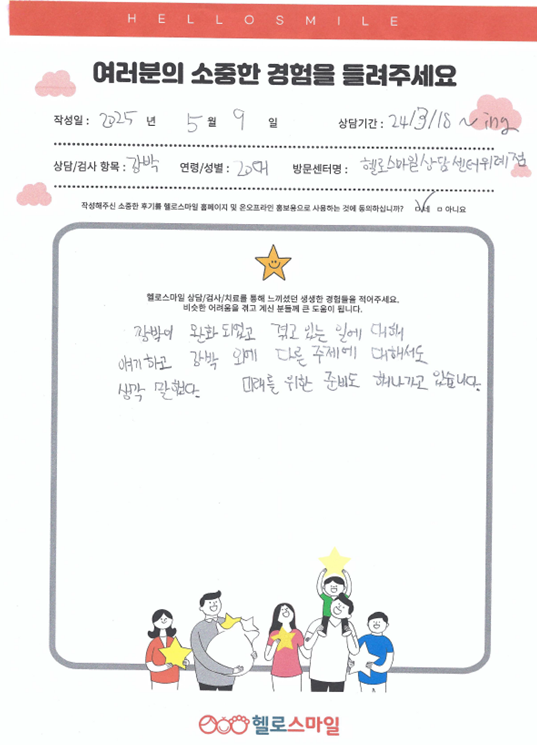 HELLOSMILE
여러분의 소중한 경험을 들려주세요
작성일 : 2025 년 5 월 9 일 상담기간 : 24/3/18 ~ ing
상담/검사 항목 : 강박 연령/성별 : 20대 방문센터명 : 헬로스마일상담센터위례점
작성해주신 소중한 후기를 헬로스마일 홈페이지 및 온오프라인 홍보용으로 사용하는 것에 동의하십니까? ㅁ네 ㅁ아니요
헬로스마일 상담/검사/치료를 통해 느끼셨던 생생한 경험들을 적어주세요.
비슷한 어려움을 겪고 계신 분들께 큰 도움이 됩니다.
강박이 완화 되었고 겪고 있는 일에 대해
얘기하고 강박 외에 다른 주제에 대해서도
생각 말했다. 미래를 위한 준비도 해나가고 있습니다.
헬로스마일